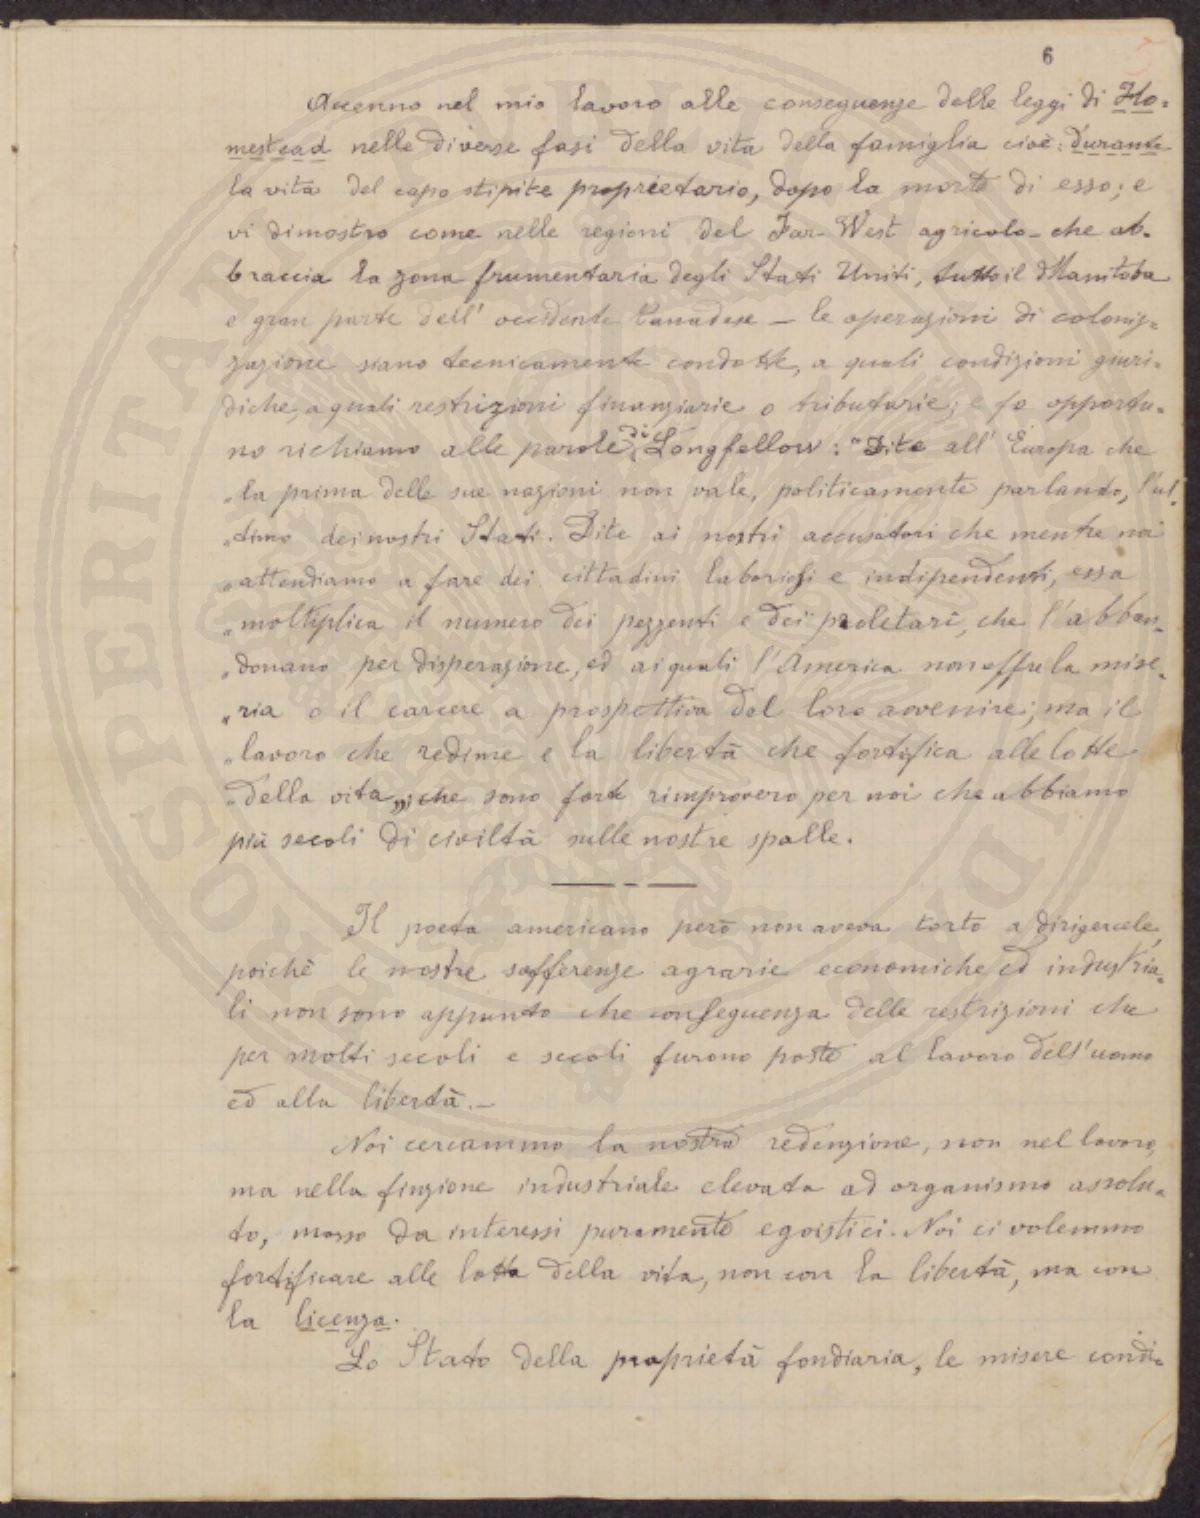 6
Accenno nel mio lavoro alle conseguenze delle leggi di Ho=
mestead nelle diverse fasi della vita della famiglia cioè: durante
la vita del capo stipite proprietario, dopo la morte di esso; e
vi dimostro come nelle regioni del Far-West agricolo - che ab-
braccia la zona frumentaria degli Stati Uniti, tutto il Manitoba
e gran parte dell' occidente Canadese - le operazioni di coloniz=
zazione siano tecnicamente condotte, a quali condizioni giuri-
diche, a quali restrizioni finanziarie o tributarie; e fo opportu-
no richiamo alle parole di Longfellow: "Dite all' Europa che
"la prima delle sue nazioni non vale, politicamente parlando, l'ul-
"timo dei nostri Stati. Dite ai nostri accusatori che mentre noi
"attendiamo a fare dei cittadini laboriosi e indipendenti, essa
"moltiplica il numero dei pezzenti e dei proletarî, che l'abban-
"donano per disperazione, ed ai quali l'America non offre la mise-
"ria o il carcere a prospettiva del loro avvenire; ma il
"lavoro che redime e la libertà che fortifica alle lotte
"della vita"; che sono forte rimprovero per noi che abbiamo
più secoli di civiltà sulle nostre spalle.
Il poeta americano però non aveva torto a dirigercele,
poichè le nostre sofferenze agrarie economiche ed industria-
li non sono appunto che conseguenza delle restrizioni che
per molti secoli e secoli furono poste al lavoro dell'uomo
ed alla libertà. -
Noi cercammo la nostra redenzione, non nel lavoro,
ma nella finzione industriale elevata ad organismo assolu-
to, mosso da interessi puramente egoistici. Noi ci volemmo
fortificare alle lotte della vita, non con la libertà, ma con
la licenza.
Lo Stato della proprietà fondiaria, le misere condi-